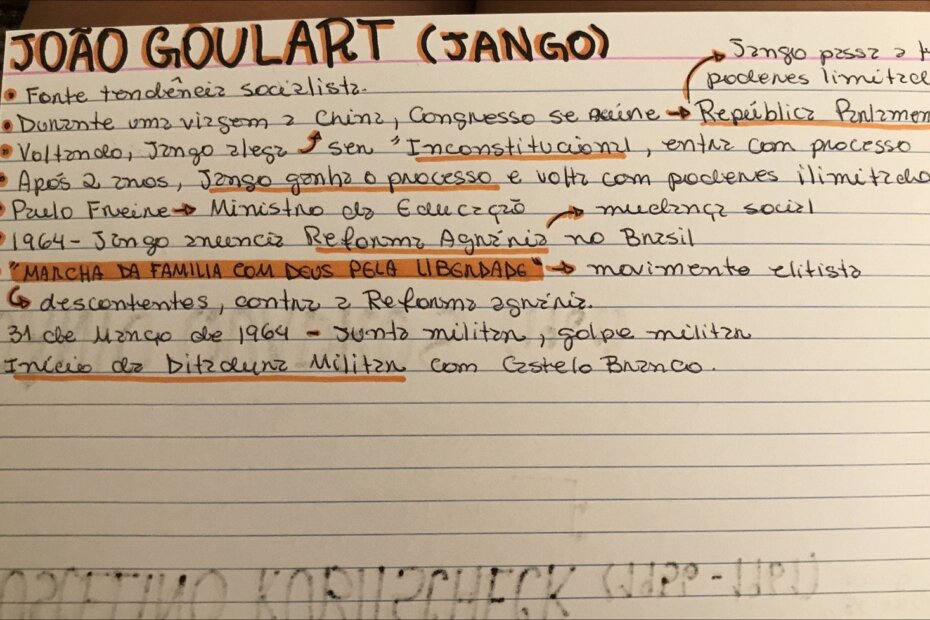 JOÃO GOULART (JANGO)
Jango passa a t
poderes limitad
• Fonte tendência socialista.
• Durante uma viagem a China, Congresso se reúne → República Parlamen
• Voltando, Jango alega ser "Inconstitucional, entra com processo
• Após 2 anos, Jango ganha o processo e volta com poderes ilimitado
• Paulo Freire → Ministro da Educação
mudança social
• 1964 - Jango anuncia Reforma Agrária no Brasil
"MARCHA DA FAMILIA COM DEUS PELA LIBERDADE" → movimento elitista
↳ descontentes, contra a Reforma agrária.
31 de Março de 1964 - Junta militar, golpe militar
Início da Ditadura Militar com Castelo Branco.